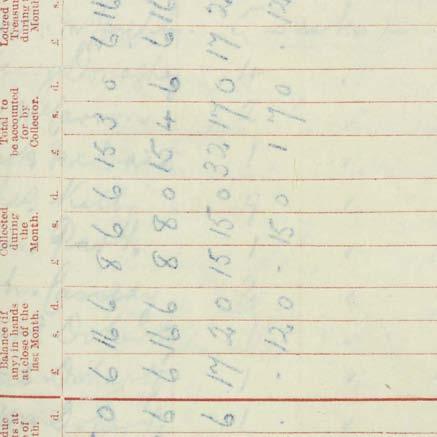 due Balance (if Collected Total to Lodged
at any) in hands during be accounted during
of at close of the the for by
last Month. Month. Collector.
d. £ s. d. £ s. d. £ s. d. £ s.
0 6 16 6 8 6 6 15 3 0 6 16
6 6 16 6 8 8 0 15 4 6 6 16
6 17 2 0 15 15 0 32 17 0 17 2
. . 12 0 . 15 0 1 7 0 . 12